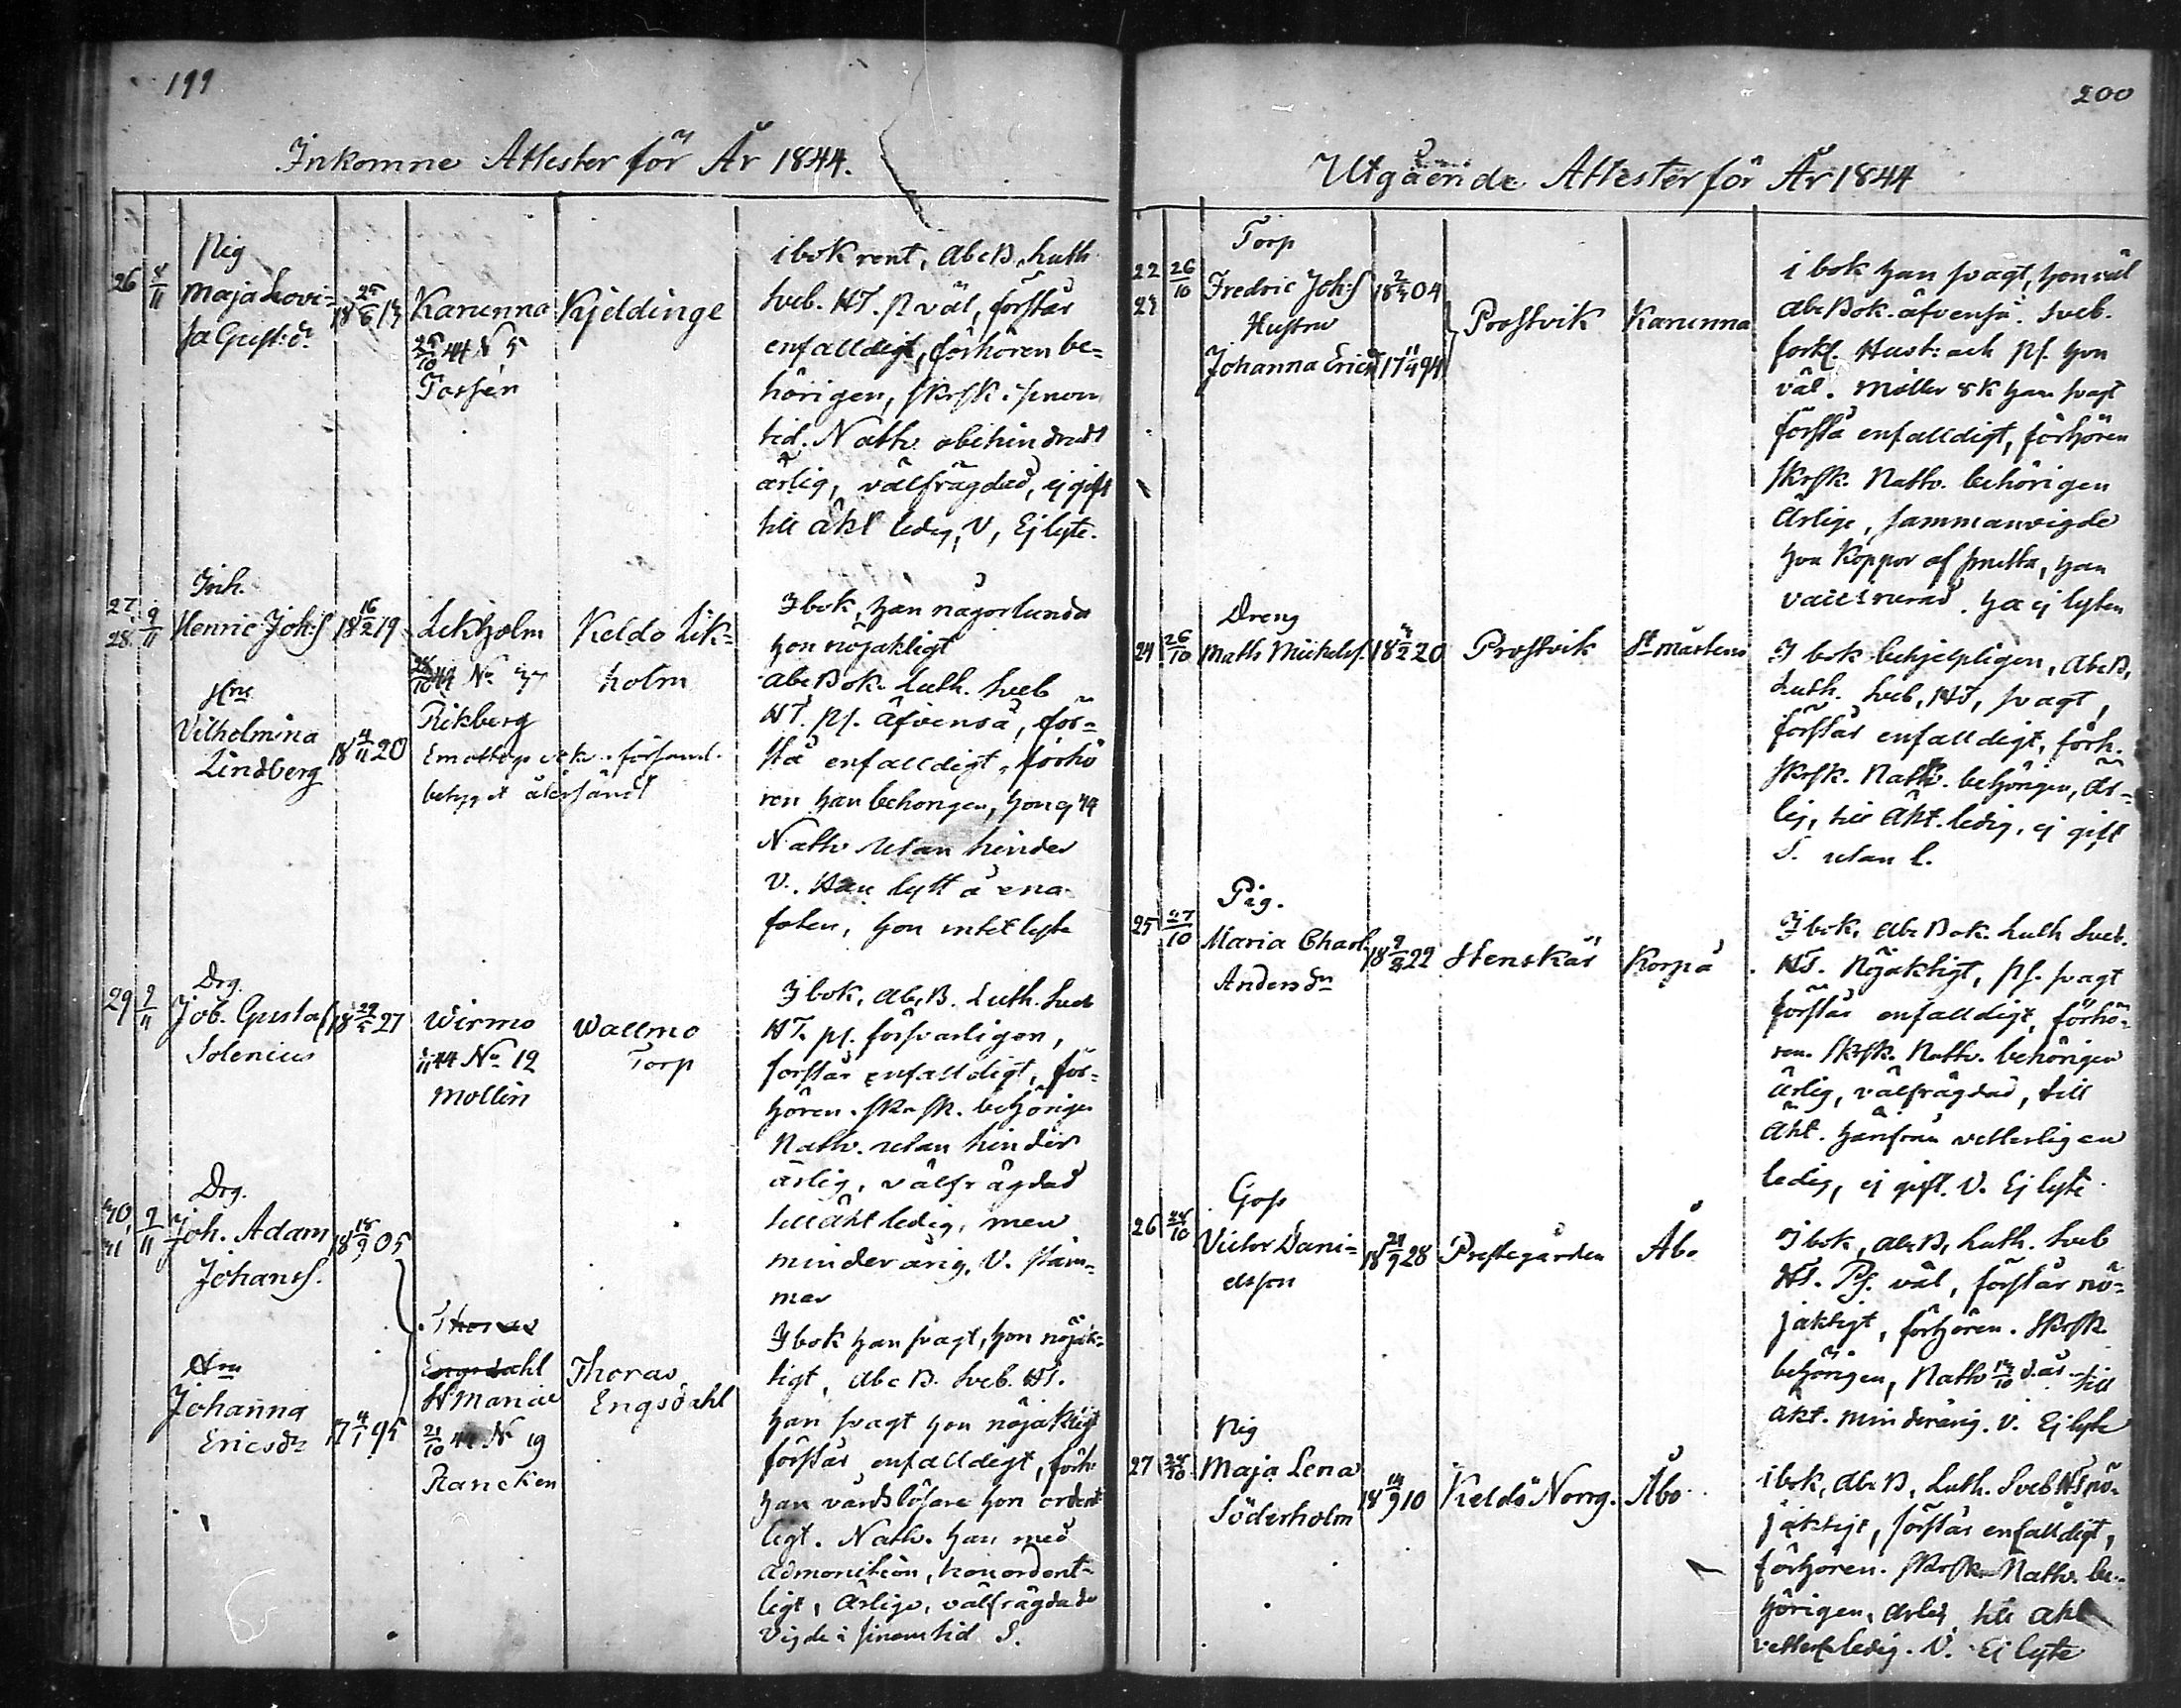 199
Inkomne Attester för År 1844.
26 4/11
Pig
Maja Lovi-
sa Gust:dr
18 25/6 13
Karunna
25/10 44 N 5
Forssén
Kjeldinge
i bok rent, AbcB, Luth
Sveb. HT. p väl, förstår
enfalldigt, förhören be-
hörigen, skrsk. i sinom
tid. Nattv. obehindradt
ärlig, välfrägdad, ej gift
till äkt ledig, V, Ej lyte.
27, 28. 9/11
Inh.
Henric Joh:s
18 16/2 19
Lekholm
28/10 44 No
Rikberg
betyget återsändt
Keldo Lik-
holm
Hru
Vilhelmina
Lindberg
18 4/11 20
I bok, han någorlunda
hon nöjaktigt
AbcBok. Luth. Sveb
HT. ps. äfvenså, för-
stå enfalldigt, förhö
ren han behörigen, hon 9/44
Nattv utan hinder
V. Han lytt å ena
foten, hon intet lyte
29 9/11
Drg.
Job. Gustaf
Solenius
18 29/5 27
Wirmo
1/11 44 No 12
Mollin
Wallmo
Torp
I bok, AbcB. Luth. Sveb
HT. ps. försvarligen,
förstår enfalldigt, för-
hören. skrsk. behörigen
Nattv. utan hinder
ärlig, välfrägdad
till äkt ledig, men
minderårig. V. stam-
mar
30, 31 9/11
Drg.
Joh. Adam
Johanss.
18 18/9 05
Hru
Johanna
Ericsdr
17 4/1 95
Thoras
Engsdahl
St Mariæ
21/10 44 No 19
Rancken
Thoras
Engsdahl
I bok han svagt, hon nöjak-
tigt, AbcB. Sveb. HT.
han svagt hon nöjaktigt
förstår enfalldigt, förh:
han vårdslösare hon ordent
ligt. Nattv. han med
admonition, hon ordent-
ligt, Ärlige, välfrägdade
Vigde i sinom tid S.
200
Utgående Attester för År 1844
22 26/10
23
Torp
Fredric Joh:s
Hustru
Johanna Ericsd
18 2/3 04
17 11/4 94
Prostvik
Karunna
i bok han svagt, hon väl
AbcBok. äfvenså. Sveb.
forkl. Hust: och ps. hon
väl. Möller SK han svagt
förstå enfalldigt, förhören
skrsk. Nattv. behörigen
Ärlige, sammanvigde
hon koppor af smitta, han
vaccinerad. ha ej lyten
24 26/10
Dreng
Matts Mickelss.
18 3/2 20
Prostvik
St Mårtens
I bok behjelpligen, AbcB,
Luth. Sveb, HT, svagt,
förstår enfalldigt, förh.
skrsk. Nattv. behörigen, är-
lig, till äkt. ledig, ej gift
S. utan l.
25 27/10
Pig.
Maria Charl.
Andersdr
18 9/8 22
Stenskär
Korpå
I bok, AbcBok. Luth Sveb.
HT. nöjaktigt, ps. svagt
förstår enfalldigt, förhö-
ren. skrsk. Nattv. behörigen
ärlig, välfrägdad, till
äkt. härifrån vetterligen
ledig, ej gift. V. Ej lyte
26 28/10
Goss
Victor Dani-
elsson
18 21/9 28
Prestegården
Åbo
I bok, AbcB, Luth. Sveb
HT. Ps. väl, förstår nö-
jaktigt, förhören. Skrsk.
behörigen, Nattv 13/10 d.år. till
äkt. minderårig. V. Ej lyte
27 28/10
Pig
Maja Lena
Söderholm
18 14/9 10
Kieldö Norrg.
Åbo
i bok, AbcB, Luth. Sveb HT, nö-
jaktigt, förstår enfalldigt,
förhören. Skrsk. Nattv. be-
hörigen, ärlig, till äkt
vetterl. ledig. V. Ej lyte